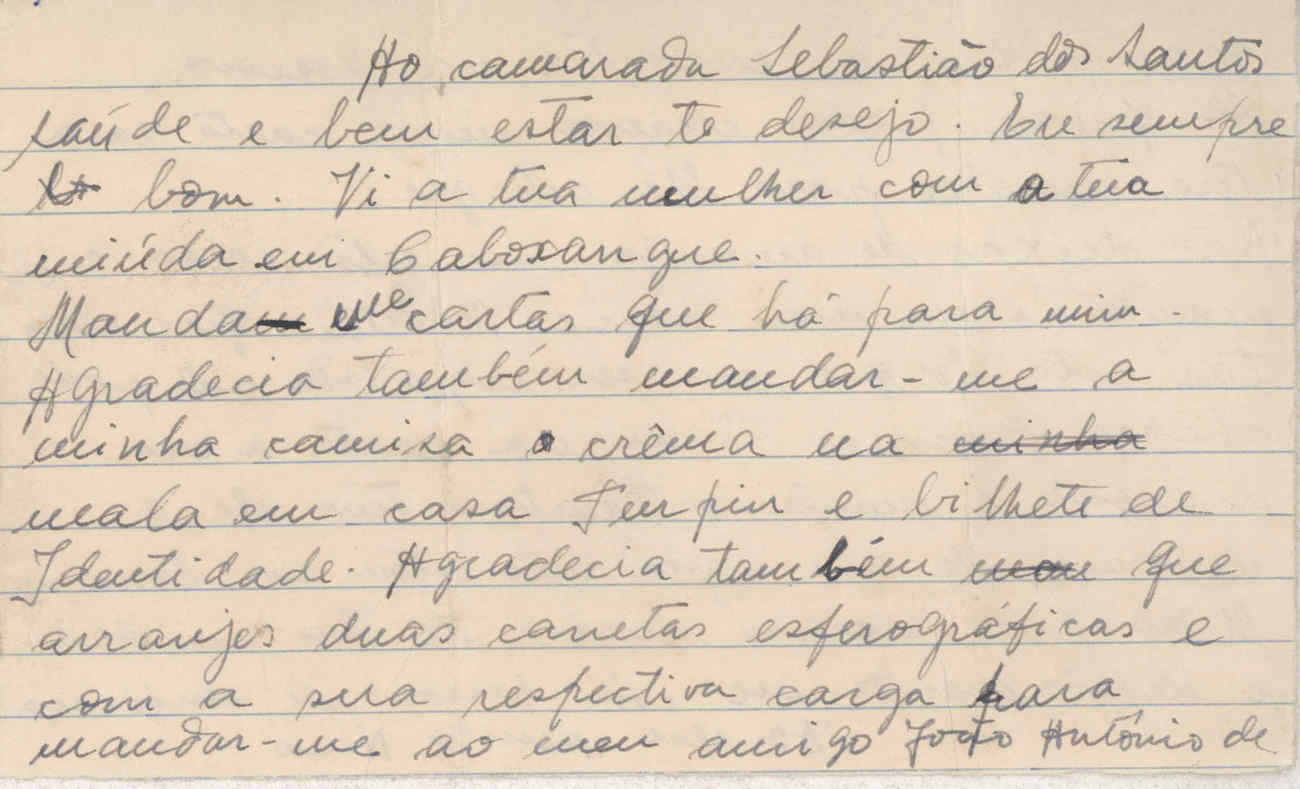 Ao camarada Sebastião dos Santos
saúde e bem estar te desejo. Eu sempre
bom. Vi a tua mulher com a tua
miúda em Caboxanque.
Manda me cartas que há para mim.
Agradecia também mandar-me a
minha camisa crêma na minha
mala em casa e bilhete de
Identidade. Agradecia também que
arranjes duas canetas esferográficas e
com a sua respectiva carga para
mandar-me ao meu amigo João António de